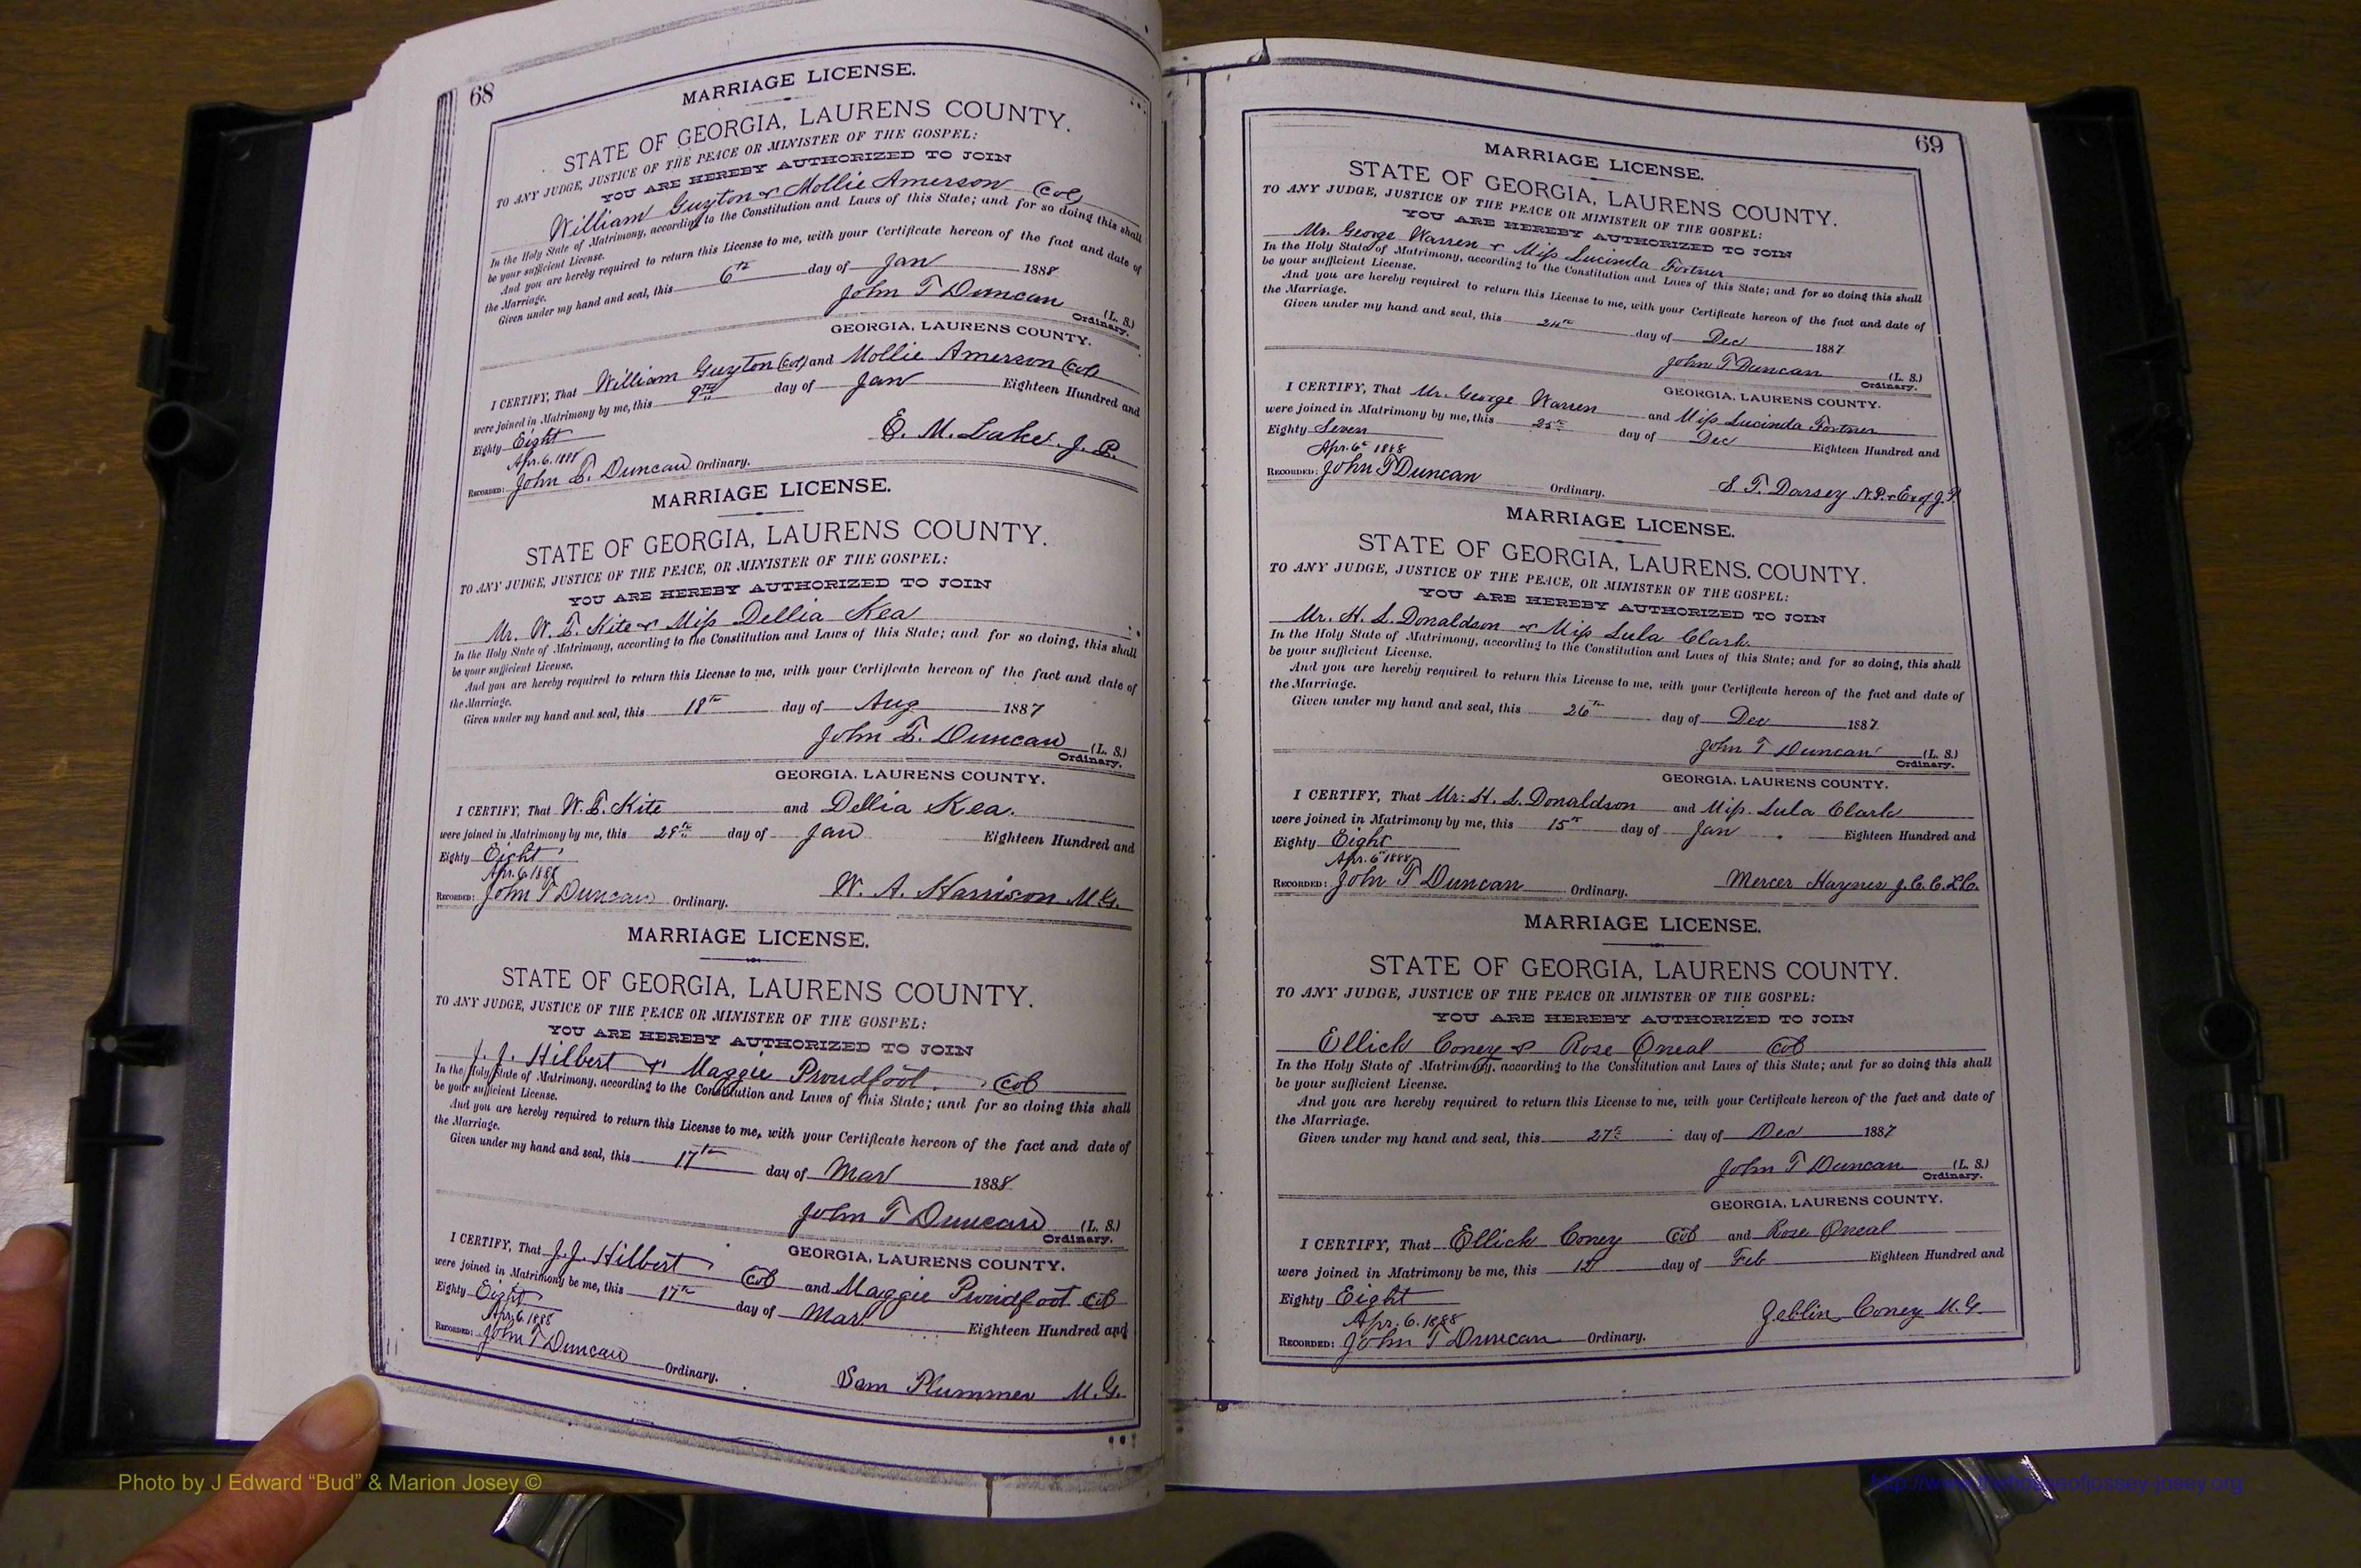 68
MARRIAGE LICENSE.
STATE OF GEORGIA, LAURENS COUNTY.
TO ANY JUDGE, JUSTICE OF THE PEACE OR MINISTER OF THE GOSPEL:
YOU ARE HEREBY AUTHORIZED TO JOIN
William Guyton & Mollie Amerson (Col)
In the Holy State of Matrimony, according to the Constitution and Laws of this State; and for so doing this shall
be your sufficient License.
And you are hereby required to return this License to me, with your Certificate hereon of the fact and date of
the Marriage.
Given under my hand and seal, this 6th day of Jan 1888
John T Duncan (L. S.)
Ordinary.
GEORGIA, LAURENS COUNTY.
I CERTIFY, That William Guyton (Col) and Mollie Amerson (Col)
were joined in Matrimony by me, this 9th day of Jan Eighteen Hundred and
Eighty Eight
Apr. 6. 1888 E. M. Lake J. P.
RECORDED: John T. Duncan Ordinary.
MARRIAGE LICENSE.
STATE OF GEORGIA, LAURENS COUNTY.
TO ANY JUDGE, JUSTICE OF THE PEACE, OR MINISTER OF THE GOSPEL:
YOU ARE HEREBY AUTHORIZED TO JOIN
Mr. W. T. Kite & Miss Dellia Kea
In the Holy State of Matrimony, according to the Constitution and Laws of this State; and for so doing, this shall
be your sufficient License.
And you are hereby required to return this License to me, with your Certificate hereon of the fact and date of
the Marriage.
Given under my hand and seal, this 18th day of Aug 1887
John T. Duncan (L. S.)
Ordinary.
GEORGIA, LAURENS COUNTY.
I CERTIFY, That W. T. Kite and Dellia Kea.
were joined in Matrimony by me, this 29th day of Jan Eighteen Hundred and
Eighty Eight
Apr. 6. 1888
RECORDED: John T Duncan Ordinary. W. A. Harrison M.G.
MARRIAGE LICENSE.
STATE OF GEORGIA, LAURENS COUNTY.
TO ANY JUDGE, JUSTICE OF THE PEACE OR MINISTER OF THE GOSPEL:
YOU ARE HEREBY AUTHORIZED TO JOIN
J. J. Hilbert & Maggie Proudfoot. Col
In the Holy State of Matrimony, according to the Constitution and Laws of this State; and for so doing this shall
be your sufficient License.
And you are hereby required to return this License to me, with your Certificate hereon of the fact and date of
the Marriage.
Given under my hand and seal, this 17th day of Mar 1888
John T Duncan (L. S.)
Ordinary.
GEORGIA, LAURENS COUNTY.
I CERTIFY, That J. J. Hilbert Col and Maggie Proudfoot Col
were joined in Matrimony be me, this 17th day of Mar Eighteen Hundred and
Eighty Eight
Apr. 6. 1888
RECORDED: John T Duncan Ordinary.
Sam Plummer M.G.
69
MARRIAGE LICENSE.
STATE OF GEORGIA, LAURENS COUNTY.
TO ANY JUDGE, JUSTICE OF THE PEACE OR MINISTER OF THE GOSPEL:
YOU ARE HEREBY AUTHORIZED TO JOIN
Mr. George Warren & Miss Lucinda Fortner
In the Holy State of Matrimony, according to the Constitution and Laws of this State; and for so doing this shall
be your sufficient License.
And you are hereby required to return this License to me, with your Certificate hereon of the fact and date of
the Marriage.
Given under my hand and seal, this 24th day of Dec 1887
John T Duncan (L. S.)
Ordinary.
GEORGIA, LAURENS COUNTY.
I CERTIFY, That Mr. George Warren and Miss Lucinda Fortner
were joined in Matrimony by me, this 25th day of Dec Eighteen Hundred and
Eighty Seven
Apr. 6th 1888
RECORDED: John T Duncan Ordinary. S. T. Dorsey N.P. & Ex of J.P.
MARRIAGE LICENSE.
STATE OF GEORGIA, LAURENS. COUNTY.
TO ANY JUDGE, JUSTICE OF THE PEACE, OR MINISTER OF THE GOSPEL:
YOU ARE HEREBY AUTHORIZED TO JOIN
Mr. H. L. Donaldson & Miss Lula Clark
In the Holy State of Matrimony, according to the Constitution and Laws of this State; and for so doing, this shall
be your sufficient License.
And you are hereby required to return this License to me, with your Certificate hereon of the fact and date of
the Marriage.
Given under my hand and seal, this 26th day of Dec 1887
John T Duncan (L. S.)
Ordinary.
GEORGIA, LAURENS COUNTY.
I CERTIFY, That Mr. H. L. Donaldson and Miss. Lula Clark
were joined in Matrimony by me, this 15th day of Jan Eighteen Hundred and
Eighty Eight
Apr. 6th 1888
RECORDED: John T Duncan Ordinary. Mercer Haynes J.C.C.L.C.
MARRIAGE LICENSE.
STATE OF GEORGIA, LAURENS COUNTY.
TO ANY JUDGE, JUSTICE OF THE PEACE OR MINISTER OF THE GOSPEL:
YOU ARE HEREBY AUTHORIZED TO JOIN
Ellick Coney & Rose Oneal Col
In the Holy State of Matrimony, according to the Constitution and Laws of this State; and for so doing this shall
be your sufficient License.
And you are hereby required to return this License to me, with your Certificate hereon of the fact and date of
the Marriage.
Given under my hand and seal, this 27th day of Dec 1887
John T Duncan (L. S.)
Ordinary.
GEORGIA, LAURENS COUNTY.
I CERTIFY, That Ellick Coney Col and Rose Oneal
were joined in Matrimony be me, this day of Feb Eighteen Hundred and
Eighty Eight
Apr. 6. 1888 Coney M.G.
RECORDED: John T Duncan Ordinary.
Photo by J Edward "Bud" & Marion Josey ©
http://www.thehouseofjossey-josey.org